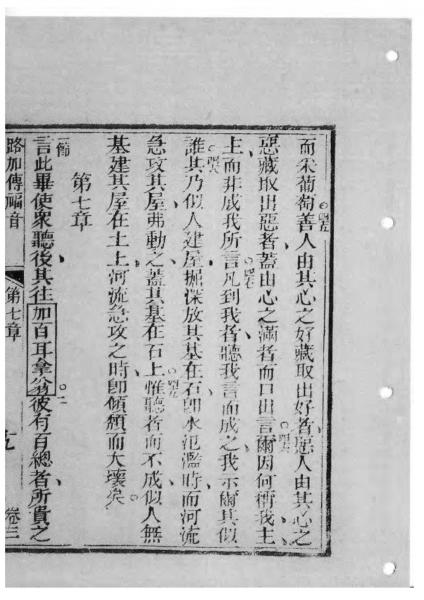 而采葡萄善人由其心之好藏取出好者惡人由其心之
惡藏取出惡者蓋由心之滿者而口出言爾因何衝我主
主而非成我所言凡到我者聽我言而成之我示爾其似
誰其乃似人建屋掘深放其基在石即水氾濫時而河流
急攻其屋弗動之蓋其基在石上惟聽者而不成似人無
基建其屋在土上河流急攻之時即傾頹而大壞矣
第七章
一節
言此畢使眾聽後其往加百耳拿翁彼有百總者所貴之
路加傳福音 第七章 九 卷三